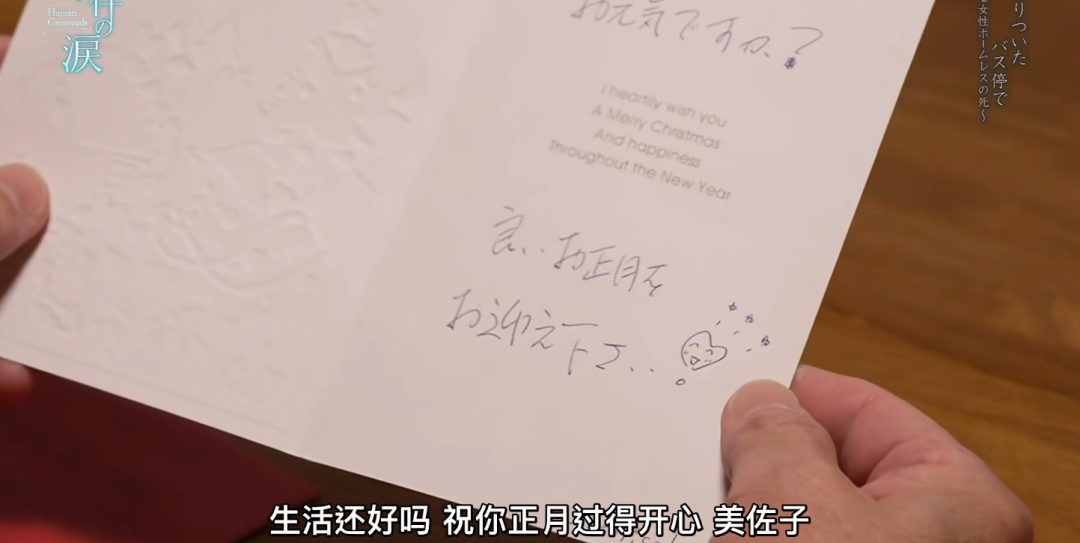 の
Human
Crossroads
涙
りついた
バス停で
女性ホームレスの死～
お元気ですか？
I heartily wish you
A Merry Christmas
And happiness
Throughout the New Year
良いお正月を
お迎え下さい
生活还好吗 祝你正月过得开心 美佐子